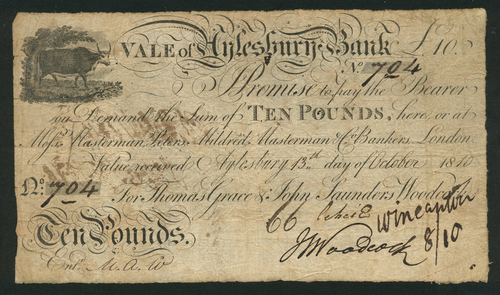 VALE of Aylesbury Bank £10.
No. 704
I Promise to pay the Bearer
on Demand the Sum of TEN POUNDS, here, or at
Messrs. Masterman, Peters, Mildred, Masterman & Co. Bankers, London
Value received Aylesbury 13th day of October 1810
No. 704 For Thomas Grace & John Saunders Woodcock
66
Wincanton
Ten Pounds. JSWoodcock 8/10
Entd. M.A.W